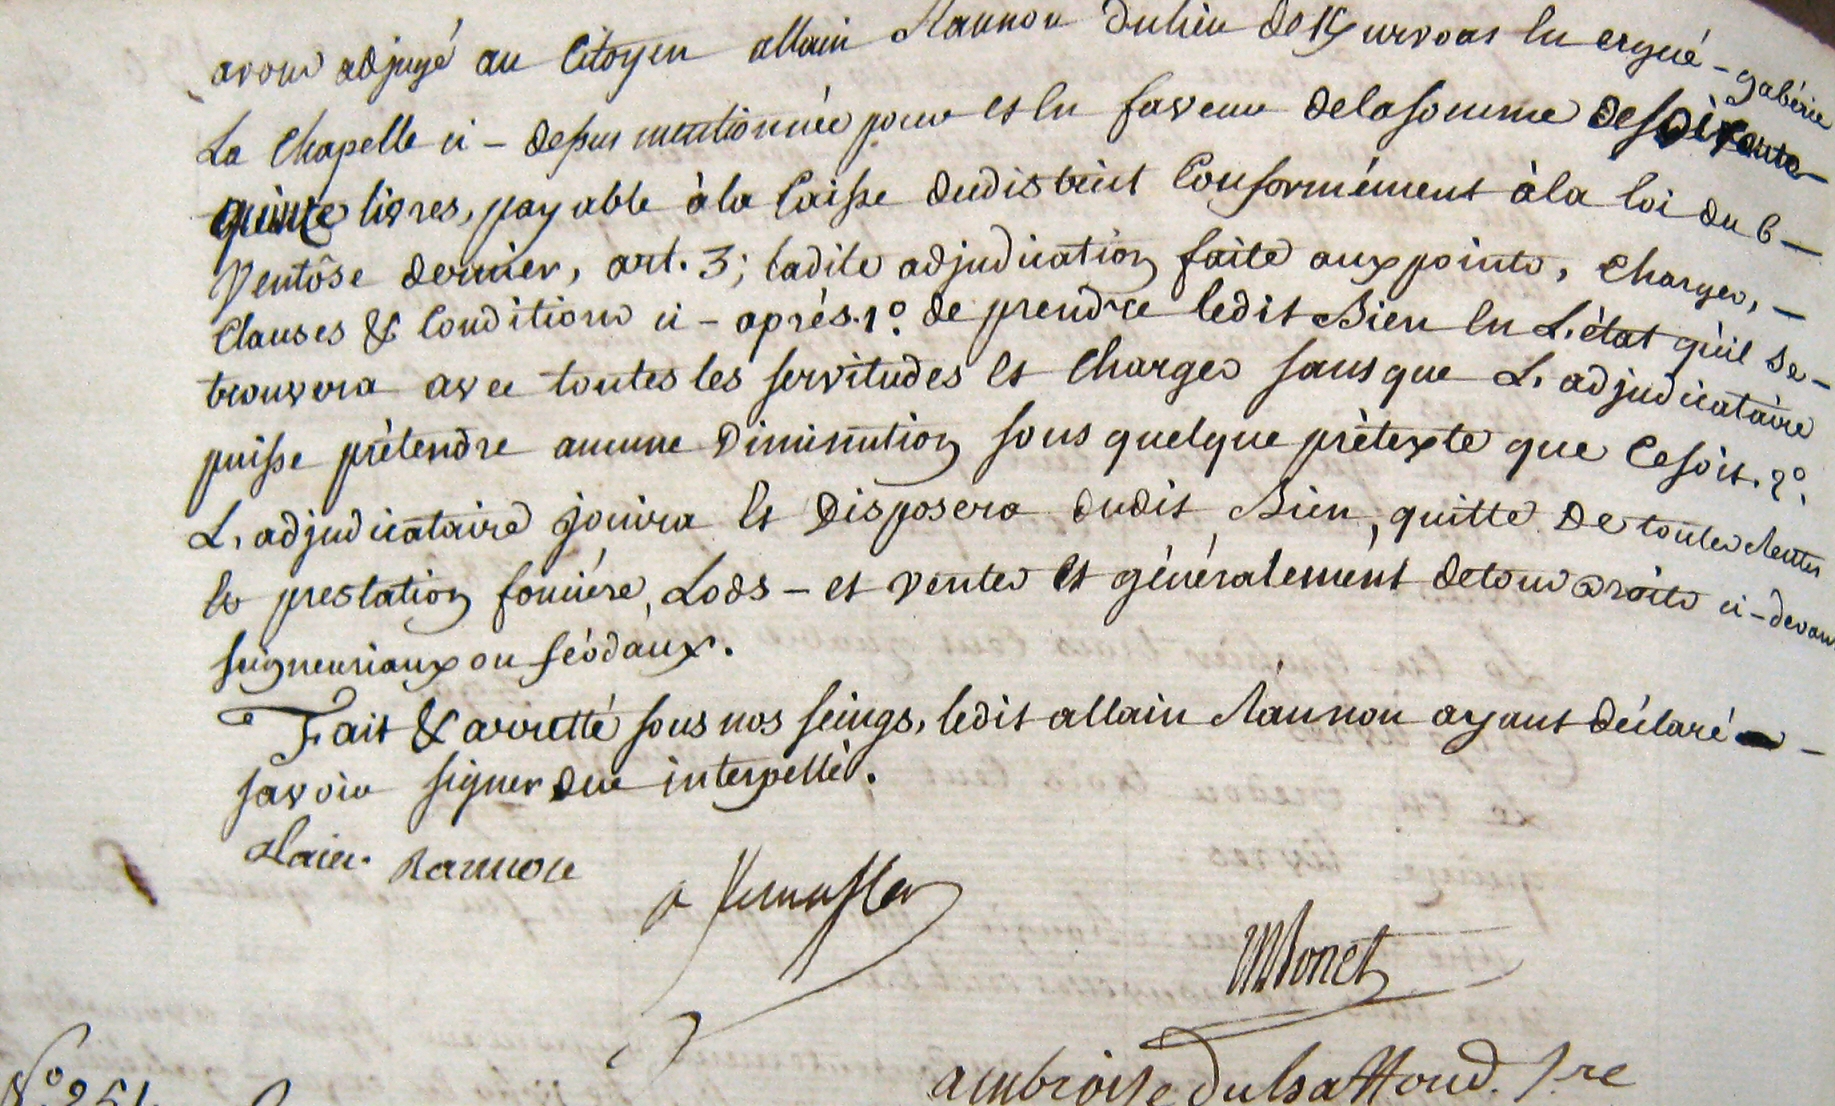 avons adjugé au Citoyen allain Rannou du lieu de Kyurvoas en ergué-gabéric
La Chapelle ci-dessus mentionnée pour et en faveur de la somme de soixante
quinze livres, payable à la Caisse dudistrict Conformément à la loi du 6 —
Ventôse dernier, art. 3; ladite adjudication faite aux points, Charges, —
Clauses & Conditions ci-après. 1º. de prendre ledit Bien en L'état qu'il se —
trouvera avec toutes les servitudes et Charges sans que L'adjudicataire
puisse prétendre aucune Diminution sous quelque prétexte que Cesoit. 2º.
L'adjudicataire jouira et Disposera dudit Bien, quitte De toutes Rentes
et prestation foncière, Lods-et ventes et généralement de tous droits ci-devant
seigneuriaux ou féodaux.
Fait & arretté sous nos seings, ledit allain Rannou ayant déclaré —
savoir signer due interpellé.
alain Rannou
Monet
ambroise
Nº 251.